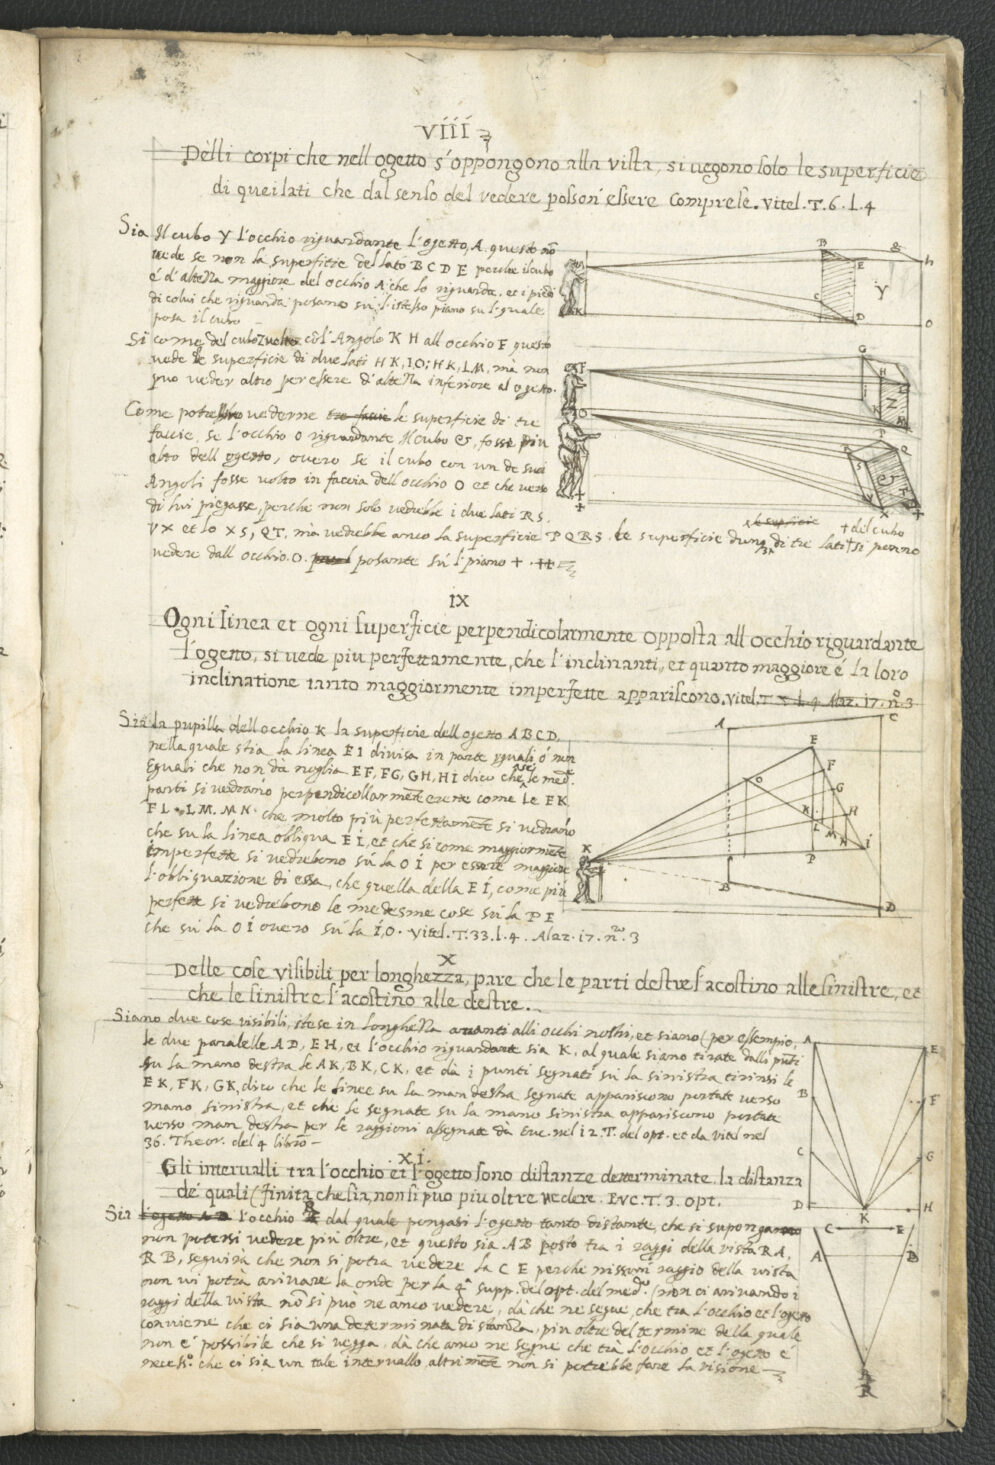 VIII
Delli corpi che nell ogetto s'oppongono alla vista, si uegono solo le superficie
di quei lati che dal senso del vedere posson' essere comprese. Vitel. T. 6. l. 4
Sia Il cubo Y l'occhio riguardante l'ogetto, A. questo nõ
uede se non la superficie del lato B C D E perche il cubo
é d'altezza maggiore del occhio A che lo riguarda. et i piedi
di colui che riguarda posano su l'istesso piano su l'quale
posa il cubo
Si come del cubo Z uolto cõ l'Angolo K H all occhio F questo
uede le superficie di due lati H K, I O; H K, L M, mà non
puo veder altro per essere d'altezza inferiore al ogetto.
Come potrebbe vederne tre faccie le superficie di tre
faccie, se l'occhio O riguardante Il cubo &, fosse piu
alto dell ogetto, overo se il cubo con un de suoi
Angoli fosse volto in faccia dell occhio O et che verso
di lui piegasse, perche non solo vedrebbe i due lati R S,
V X et lo X S, Q T, mà vedrebbe anco la superficie P Q R S. le superficie dunq, di tre lati + si penno
le superficie
+ del cubo
vedere dall occhio. O. posante sú l'piano + ++
IX
Ogni linea et ogni superficie perpendicolarmente opposta all occhio riguardante
l'ogetto, si vede piu perfettamente, che l'inclinanti, et quanto maggiore é la loro
inclinatione tanto maggiormente imperfette appariscono. vitel. T. 5. l. 4. Alaz. 17. nº. 3
Sia la pupilla dell occhio K la superficie dell ogetto A B C D
nella quale stia la linea E I divisa in parte yguali ó non
Eguali che non dà noglia E F, F G, G H, H I dico che se le medᵉ.
parti si vedrano perpendicollarmẽte erette come le E K
F L, L M. M N. che molto piú perfettamẽte si vedrano
che su la linea obliqua E I, et che si come maggiormẽte
imperfette si vedrebono sú la O I per essere maggiore
l'obliquazione di essa, che quella della E I, come piú
perfett si vedrebono le medesme cose sú la P E
che sú la O I overo sú la I, O. Vitel. T. 33. l. 4. Alaz. 17. nº. 3
X
Delle cose visibili per longhezza, pare che le parti destre s'acostino alle sinistre, et
che le sinistre s'acostino alle destre.
Siano due cose visibili, stese in longhezza avanti alli occhi nostri, et siano (per essempio,
le due paralelle A D, E H, et l'occhio riguardante sia K, al quale siano tirate dalli punti
su la mano destra le A K, B K, C K, et dà i punti segnati sú la sinistra tirinsi le
E K, F K, G K, dico che le linee su la man destra segnate appariscono portate verso
mano sinistra, et che le segnate su la mano sinistra appariscono portate
verso man destra per le raggioni assegnate dà Euc. nel 12. T. del opt. et da vitel nel
36. Theor. del 4 libro
XI.
Gli intervalli tra l'occhio et l'ogetto sono distanze determinate. la distanza
de' quali (finita che sia, non si puo piu oltre vedere. Euc. T. 3. opt.
Sia l'ogetto A B l'occhio R dal quale pongasi l'ogetto tanto distante, che si supongano
non potersi vedere piú oltre, et questo sia A B posto tra i raggi della vista R A,
R B, seguirà che non si potra vedere la C E perche nissun' raggio della vista
non vi potrà arivare la onde per la 4ª supp. del opt. del medº. (non ci arivando i
raggi della vista nõ si può ne anco vedere, dà che ne segue, che tra l'occhio et l'ogeto
conviene che ci sia una determinata distanza, piu oltre del termine della quale
non é possibile che si vegga, dà che anco ne segue che trà l'occhio et l'ogetto é
necessº. che ci sia un tale intervallo, altrimẽte non si potrebbe fare la visione